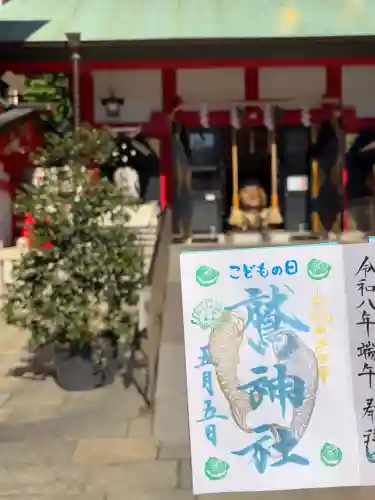 こどもの日
鷲神社
五月五日
令和八年端午奉拝